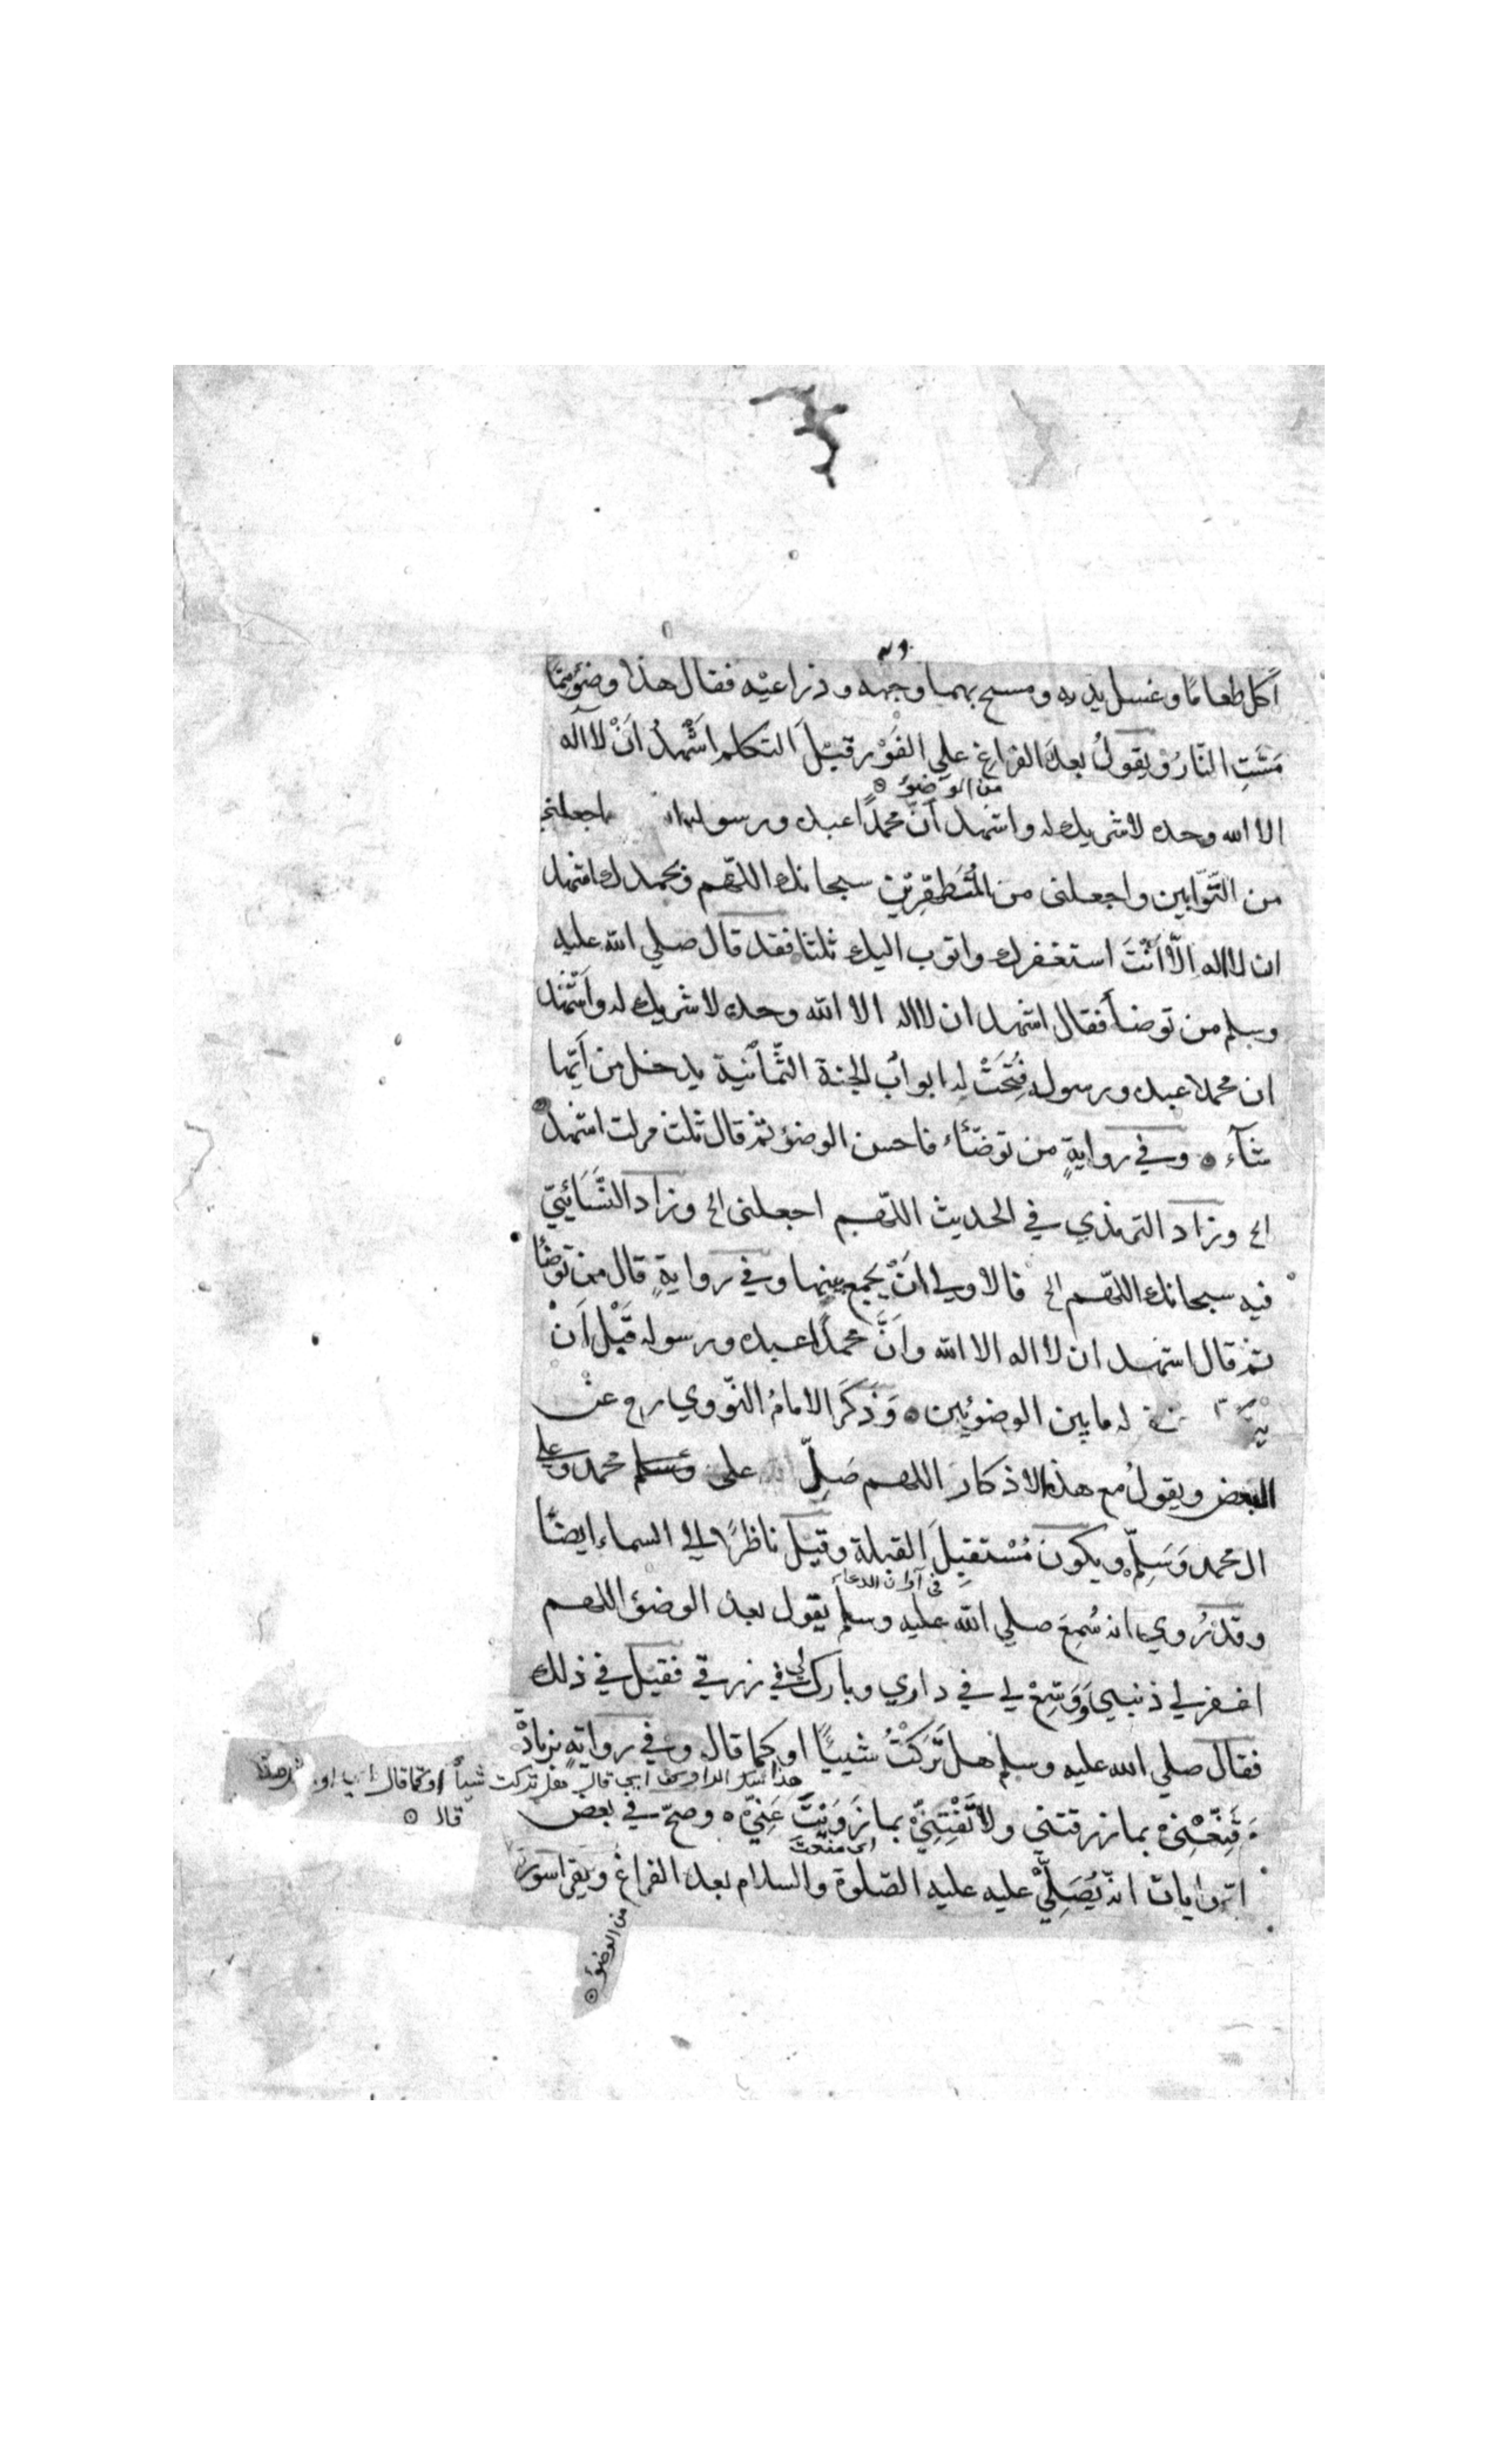 اكل طعامًا وغسل يديه ومسح بهما وجهه وذراعيْه فقال هذا وضوء ممّا
مَسَّتِ النّارُ ويقولُ بعدَ الفراغِ علي الفَوْرِ قبْلَ التكلم اَشْهدُ اَنْ لا اله
من الوضوء
الا الله وحده لا شريك له واشهد اَنّ محمدًا عبده ورسوله اجعلني
من التّوّابين واجعلنى من المُتَطهِّرِيْن سبحانك اللّهم وبحمدك اشهد
ان لا اله اِلّا اَنْتَ استغفرك واتوب اليك ثلثا فقد قال صلي الله عليه
وسلم من توضأ فقال اشهد ان لا اله الا الله وحده لا شريك له واَشْهد
ان محمدا عبده ورسوله فُتِحَتْ له ابوابُ الجنة الثّمانْية يدخل من اَيّها
شآء وفي روايةٍ من توضّاَء فاحسن الوضوء ثم قال ثلث مرات اشهد
الخ وزاد الترمذي في الحديث اللّهم اجعلنى الخ وزاد النَّسَائيّ
فيه سبحانك اللّهم الخ فالاولي اَنْ يجمع بينها وفي روايةٍ قال من توضأ
ثم قال اشهد ان لا اله الا الله واَنَّ محمدًا عبده ورسوله قَبْلَ اَنْ
له ما بين الوضوئين وَذَكَرَ الامامُ النّووي رح عن
البعض ويقولُ مع هذه الاذكار اللهم صَلِّ على وسلم محمد وعلي
ال محمد وَسَلِّمْ ويكون مُسْتقبِلَ القبلة وقيْل ناظرًا الي السماء ايضًا
في آوان الدعاء
وقد رُوي انه سُمِعَ صلي الله عليه وسلم يقول بعد الوضوء اللهم
اغفر لي ذنبي وَوَسِّعْ لي في داري وبارك لي في رزقي فقيْل في ذلك
فقال صلي الله عليه وسلم هل تَرَكْتُ شيئًا او كما قال وفي روايةٍ بزيادْ
هذا شك الراوي اي قال هل تركت شيأ او كما قال
قال
قَنِّعْنِيْ بما رزقتني ولا تَفْتِنِيّْ بما زَوَيْتَ عَنِيّْ وصحّ في بعض
اي منعت
الروايات انه يُصَلِّيْ عليه عليه الصّلوة والسلام بعد الفراغ ويقرا سورة
من الوضوء